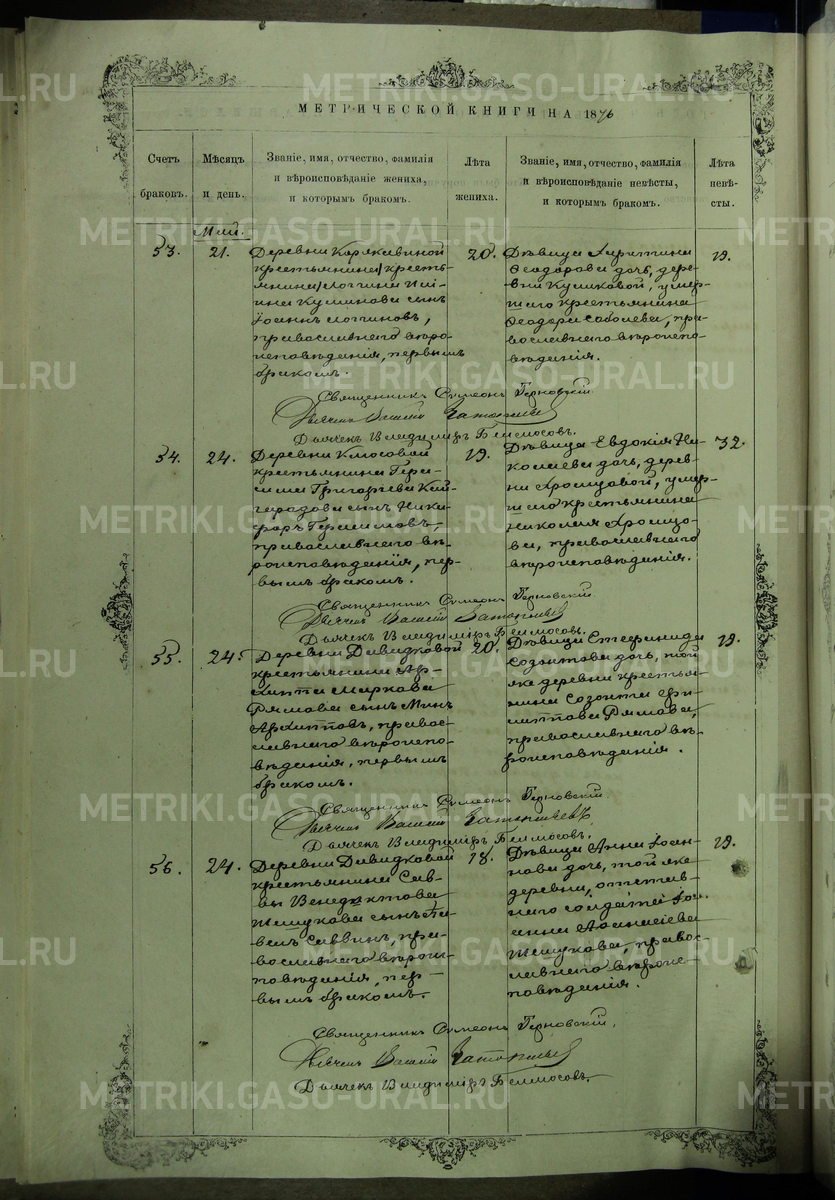 МЕТРИЧЕСКОЙ КНИГИ НА 1876
Счетъ браковъ.
Мѣсяцъ и день.
Званіе, имя, отчество, фамилія
и вѣроисповѣданіе жениха,
и которымъ бракомъ.
Лѣта жениха.
Званіе, имя, отчество, фамилія
и вѣроисповѣданіе невѣсты,
и которымъ бракомъ.
Лѣта невѣ-
сты.
Май.
53.
21.
Деревни Корякиной
крестьянина /кресть-
янина/ Логгина
Куликова сынъ
Іоаннъ Логгиновъ,
православнаго вѣро-
исповѣданія, первымъ
бракомъ.
20.
Дѣвица
Феодорова дочь, дере-
вни Куликовой, умер-
шаго крестьянина
Феодора Соболева, пра-
вославнаго вѣроиспо-
вѣданія.
19.
Священникъ Симеонъ
Дьячекъ Владиміръ Бѣлоносовъ.
54.
24.
Деревни
крестьянина Гера-
сима Григорьева
сынъ Ники-
форъ Герасимовъ,
православнаго вѣ-
роисповѣданія, пер-
вымъ бракомъ.
19.
Дѣвица Евдокія Ни-
колаева дочь, дерев-
ни Хромцовой, умер-
шаго крестьянина
Николая Хромцо-
ва, православнаго
вѣроисповѣданія.
32.
Священникъ Симеонъ
Дьячекъ Владиміръ Бѣлоносовъ.
55.
24.
Деревни Давидковой
крестьянина Ар-
хиппа Маркова
Рямова сынъ Минъ
Архипповъ, правос-
лавнаго вѣроиспо-
вѣданія, первымъ
бракомъ.
20.
Дѣвица Стефанида
Созонтова дочь, той
же деревни крестья-
нина Созонта Фи-
липпова Рямова,
православнаго вѣ-
роисповѣданія.
19.
Священникъ Симеонъ
Дьячекъ Владиміръ Бѣлоносовъ.
56.
24.
Деревни Давидковой
крестьянина Сав-
вы Венедиктова
Шешукова сынъ Па-
велъ Саввинъ, пра-
вославнаго вѣрои-
повѣданія, пер-
вымъ бракомъ.
18.
Дѣвица Анна Іоан-
нова дочь, той же
деревни, отстав-
наго солдата Іоа-
нна Аѳанасіева
Шешукова, правос-
лавнаго вѣроис-
повѣданія.
19.
Священникъ Симеонъ
Дьячекъ Владиміръ Бѣлоносовъ.
METRIKI.GASO-URAL.RU